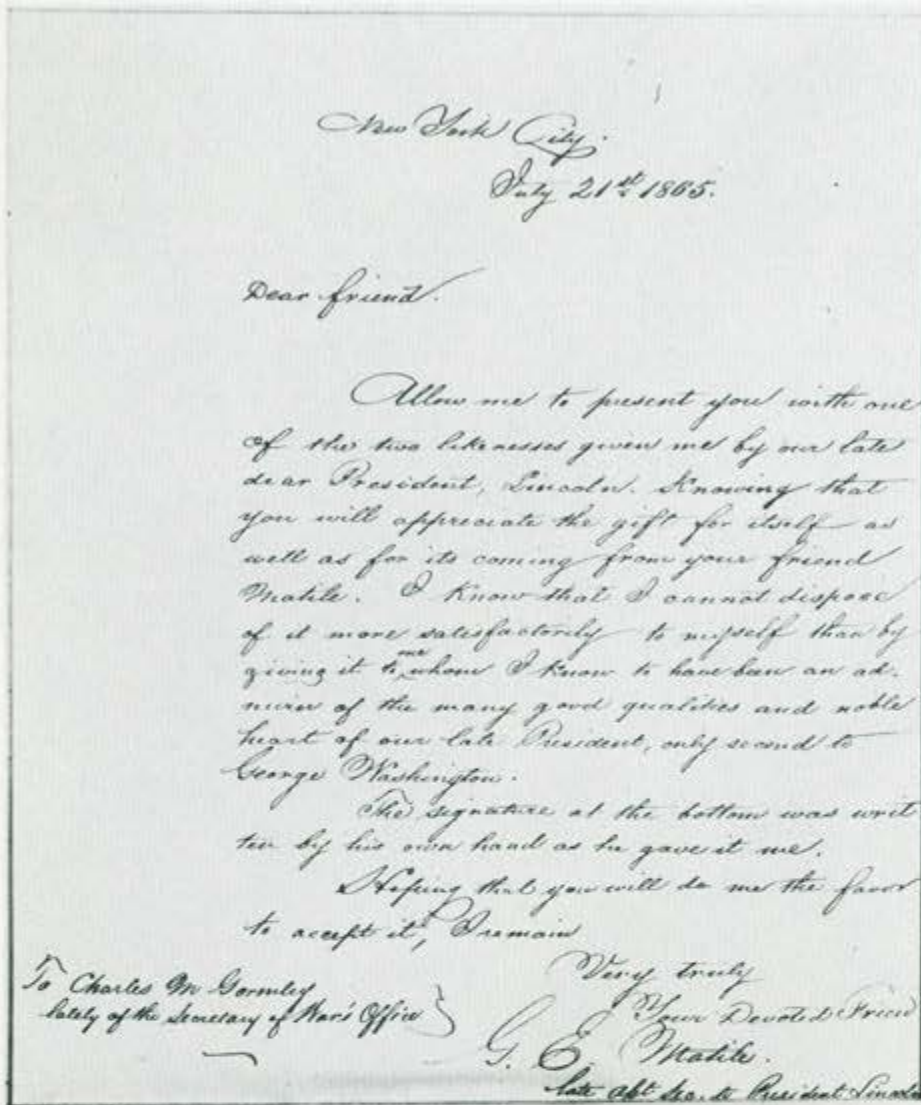 New York City.
July 21st 1865.
Dear friend.
Allow me to present you with one
of the two likenesses given me by our late
dear President, Lincoln. Knowing that
you will appreciate the gift for itself as
well as for its coming from your friend
Matile. I know that I cannot dispose
of it more satisfactorily to myself than by
giving it to one whom I know to have been an ad-
mirer of the many good qualities and noble
heart of our late President, only second to
George Washington.
The signature at the bottom was writ
ten by his own hand as he gave it me.
Hoping that you will do me the favor
to accept it, I remain
Very truly
Your Devoted Friend
G. E. Matile.
late asst Sec. to President Lincoln
To Charles M Gormley
lately of the Secretary of War's Office